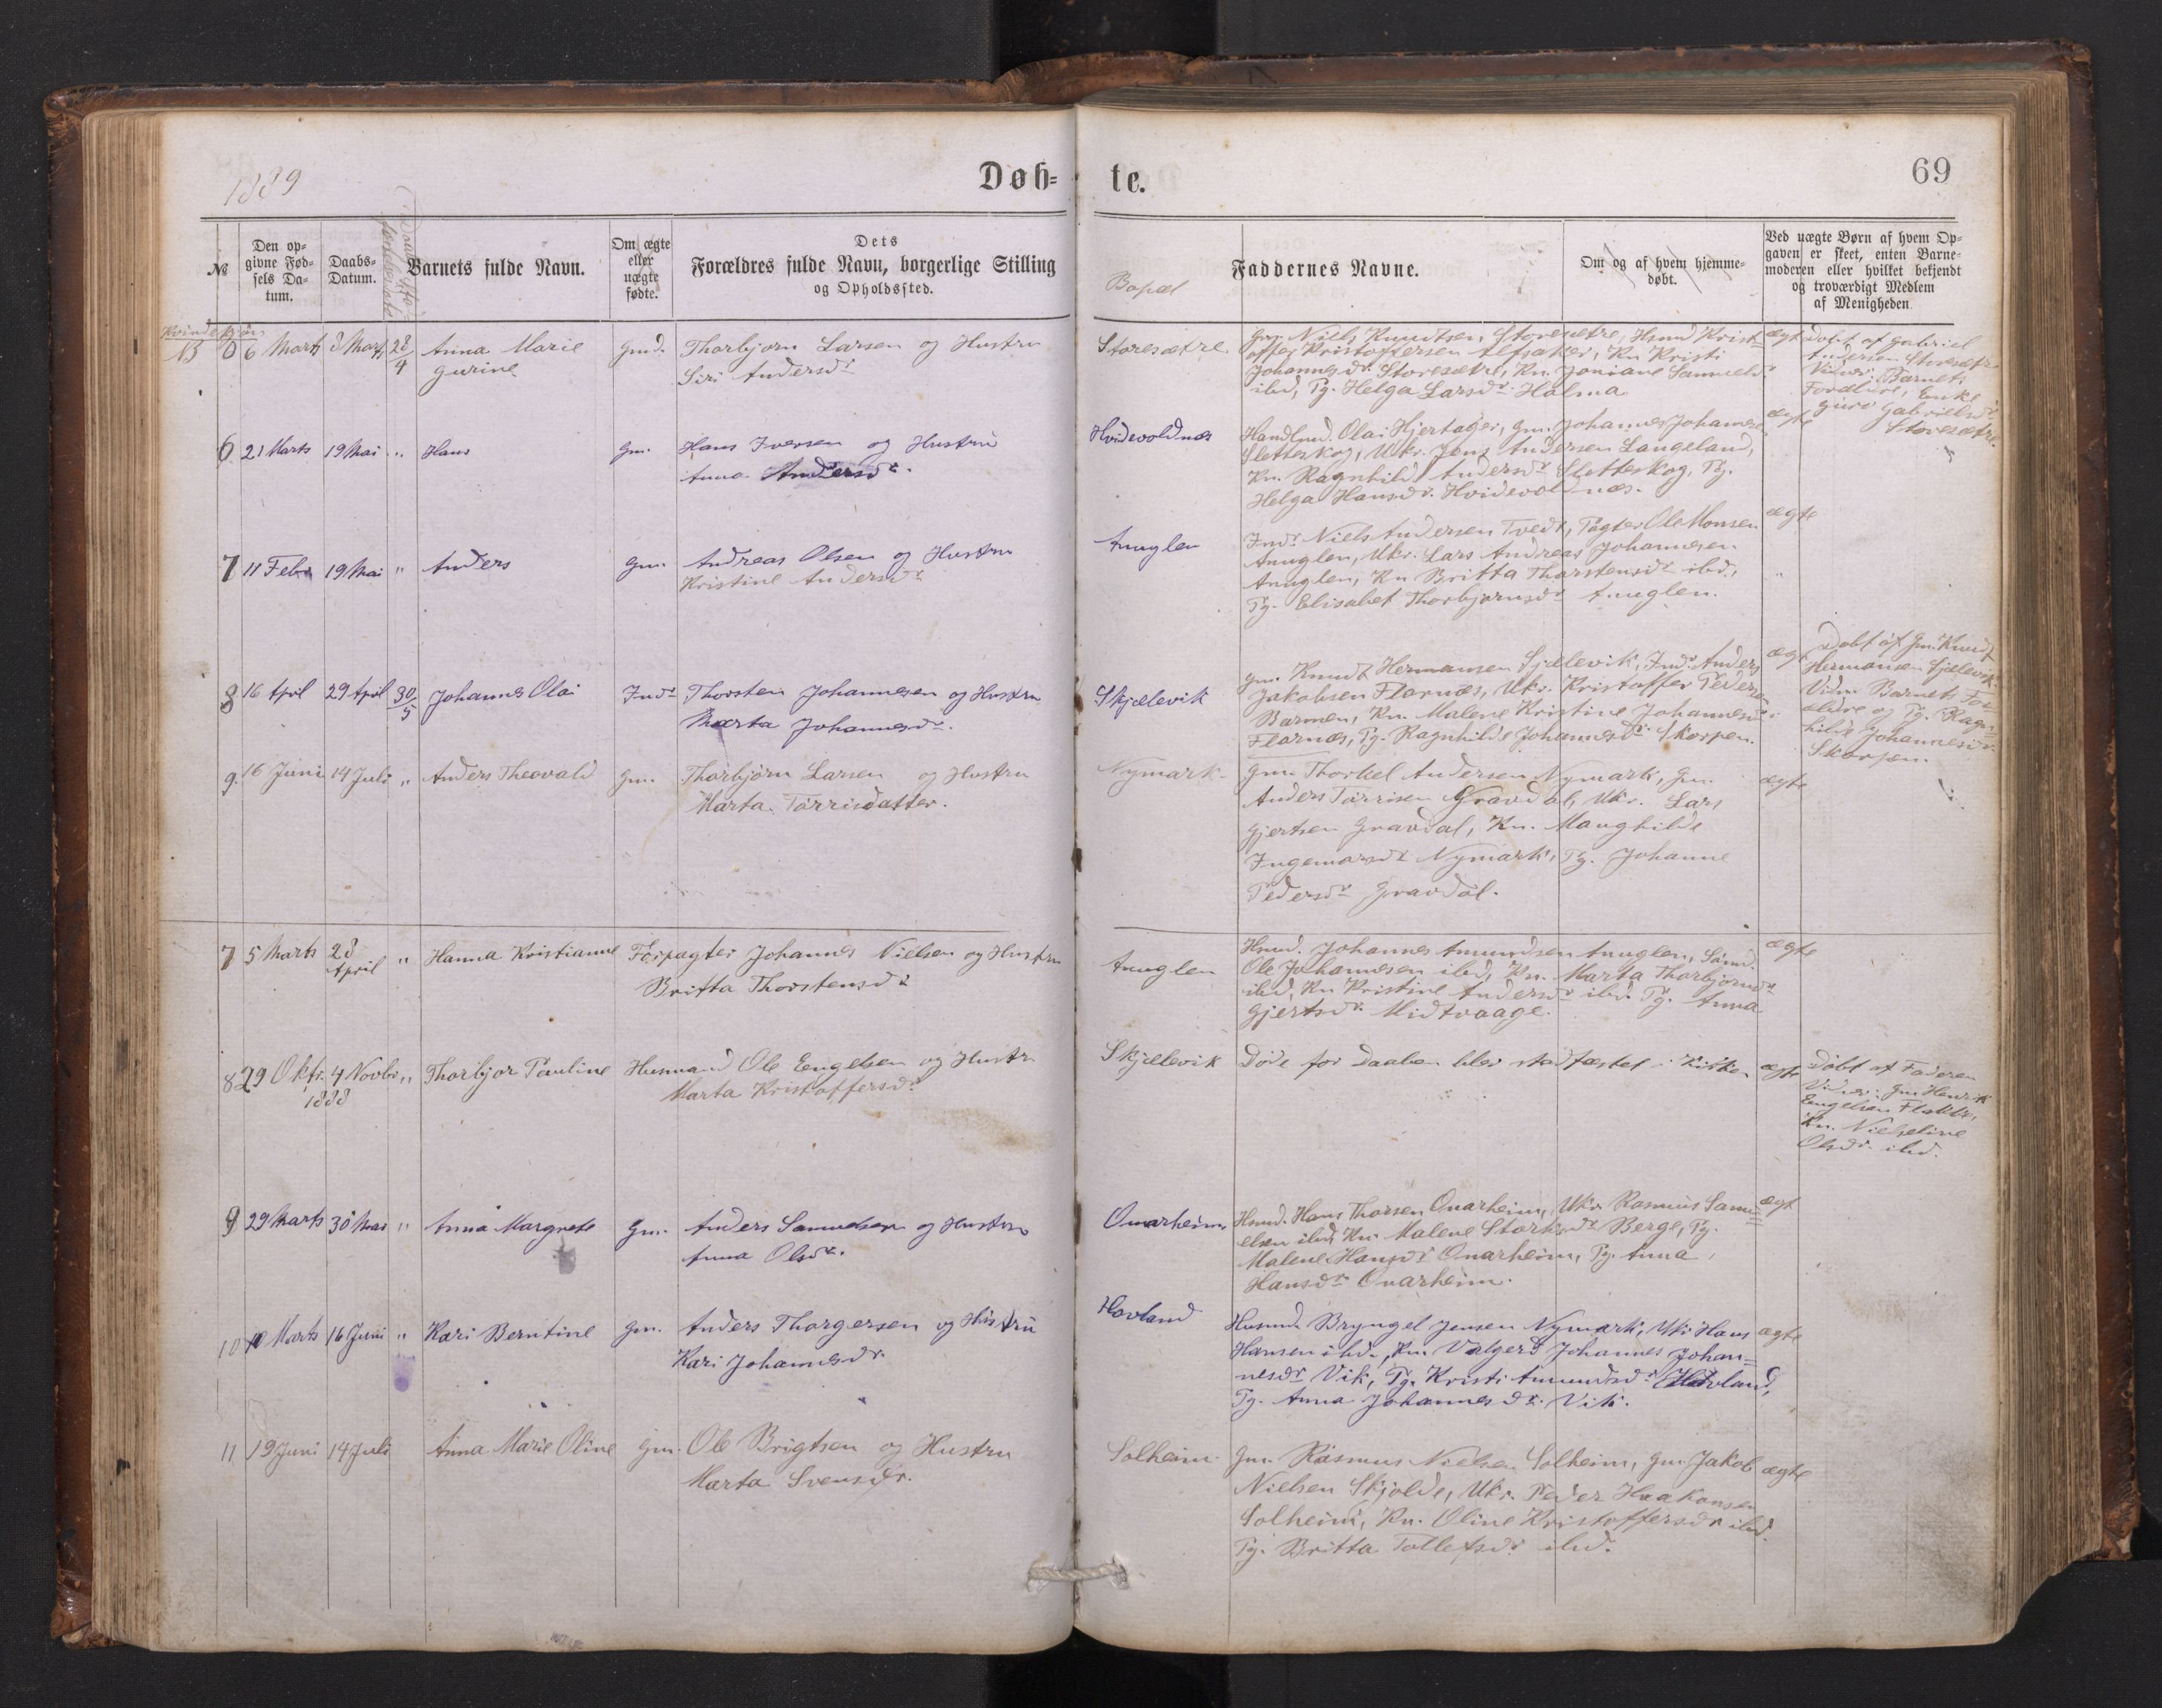 1889
Døb-
te.
69
№
Den op-
givne Fød-
sels Da-
tum.
Daabs-
Datum.
Barnets fulde Navn.
Om ægte
eller
uægte
fødte.
Dets
Forældres fulde Navn, borgerlige Stilling
og Opholdssted.
Bopæl
Faddernes Navne.
Om og af hvem hjemme-
døbt.
Ved uægte Børn af hvem Op-
gaven er skeet, enten Barne-
moderen eller hvilket bekjendt
og troværdigt Medlem
af Menigheden.
Kvindekjøn
6 Marts 8 Marts 28/4 Anna Marie Gmd. Thorbjørn Larsen og Hustru
Gurine Siri Andersdr
Storesætre
Gm. Niels Knudtsen, Storesætre, Husmd Krist-
offer Kristoffersen Alsaker, Kn. Kristi
Johannesdr. Storesætre, Kn. Joniane Samuelsdr
ibd, Pg. Helga Larsdr. Holma
ægt
Døbt af Gabriel
Andersen Storesætre
Vidner: Barnets
Forældre, Enke
Guro Gabrielsdr
Storesætre.
6 21 Marts 19 Mai " Hans Gm. Hans Iversen og Hustru
Anna Andersdr.
Hvidevoldnæs
Handlmd. Olai Hjertager, Gm. Johannes Johannes
Sletteskog, Ukr. Jens Andersen Langeland,
Kn. Ragnhild Andersdr Sletteskog, Pg.
Helga Hansdr. Hvidevoldnæs.
ægte
7 11 Febr 19 Mai " Anders Gm. Andreas Olsen og Hustru
Kristine Andersdr
Anuglen
Indr Niels Andersen Tvedt, Pagter Ole Monsen
Anuglen, Ukr. Lars Andreas Johannesen
Anuglen, Kn Britta Thorstensdr ibd.,
Pg. Elisabet Thorbjørnsdr Anuglen.
ægte
8 16 April 29 April 30/5 Johannes Olai Indr Thorsten Johannesen og Hustru
Marta Johannesdr.
Skjælevik
Gm. Knudt Hermansen Skjælevik, Indr. Anders
Jakobsen Flornæs, Ukr. Kristoffer Peders
Barmen, Kn. Malene Kristine Johannesdr
Flornæs, Pg. Ragnhilde Johannesdr Skorpen.
ægt
Døbt af Gm. Knudt
Hermansen Skjælevik
Vidn. Barnets For-
ældre og Pg. Ragn-
hilde Johannesdr.
Skorpen.
9. 16 Juni 14 Juli " Anders Theovald Gm. Thorbjørn Larsen og Hustru
Marta Tørrisdatter.
Nymark
Gm. Thorkel Andersen Nymark, Gm.
Anders Tørrisen Gravdal, Ukr. Lars
Gjertsen Gravdal, Kn. Maughilde
Ingemarsdr Nymark, Pg. Johanne
Pedersdr Gravdal.
ægte
7 5 Marts 28 April " Hanna Kristianne Forpagter Johannes Nielsen og Hustru
Britta Thorstensdr
Anuglen
Husmd. Johannes Amundsen Anuglen,
Ole Johannesen ibd, Kn. Marta Thorbjørnsdr
ibd, Kn Kristine Andersdr ibd. Pg. Anna
Gjertsdr. Midtvaage.
ægte
8 29 Oktr. 4 Novbr " Thorbjør Pauline Husmand Ole Eengelsen og Hustr.
1888 Marta Kristoffersdr
Skjælevik
Døde før Daaben blev stadfæstet i Kirken
ægte
Døbt af Faderen
Vidner: Gm Henrik
Engelsen
Kn. Nielseline
Olsdr. ibd.
9 29 Marts 30 Mai " Anna Margrete Gm. Anders Samuelsen og Hustru
Anna Olsdr.
Onarheim
Husmd. Hans Thorsen Onarheim, Ukr Rasmus Samu-
elsen ibd, Kn. Malene Storksdr Berge, Pg.
Malene Hansdr Onarheim, Pg. Anna
Hansdr Onarheim.
ægt
10 10 Marts 16 Juni " Kari Berntine Gm. Anders Thorgersen og Hustru
Kari Johannesdr.
Hovland
Husmd. Bryngel Jensen Nymark, Ukr Hans
Hansen ibd., Kn. Valgerd Johannes Johan-
nesdr Vik, Pg. Kristi Amundsdr Hovland,
Pg. Anna Johannesdr. Vik.
ægte
11 19 Juni 14 Juli Anna Marie Oline Gm. Ole Brigtsen og Hustru
Marta Svensdr.
Solheim
Gm. Rasmus Nielsen Solheim, Gm. Jakob
Nielsen Skjolde, Ukr. Peder Haakonsen
Solheim, Kn. Oline Kristoffersdr ibd.
Pg. Britta Tollefsdr ibd.
ægte